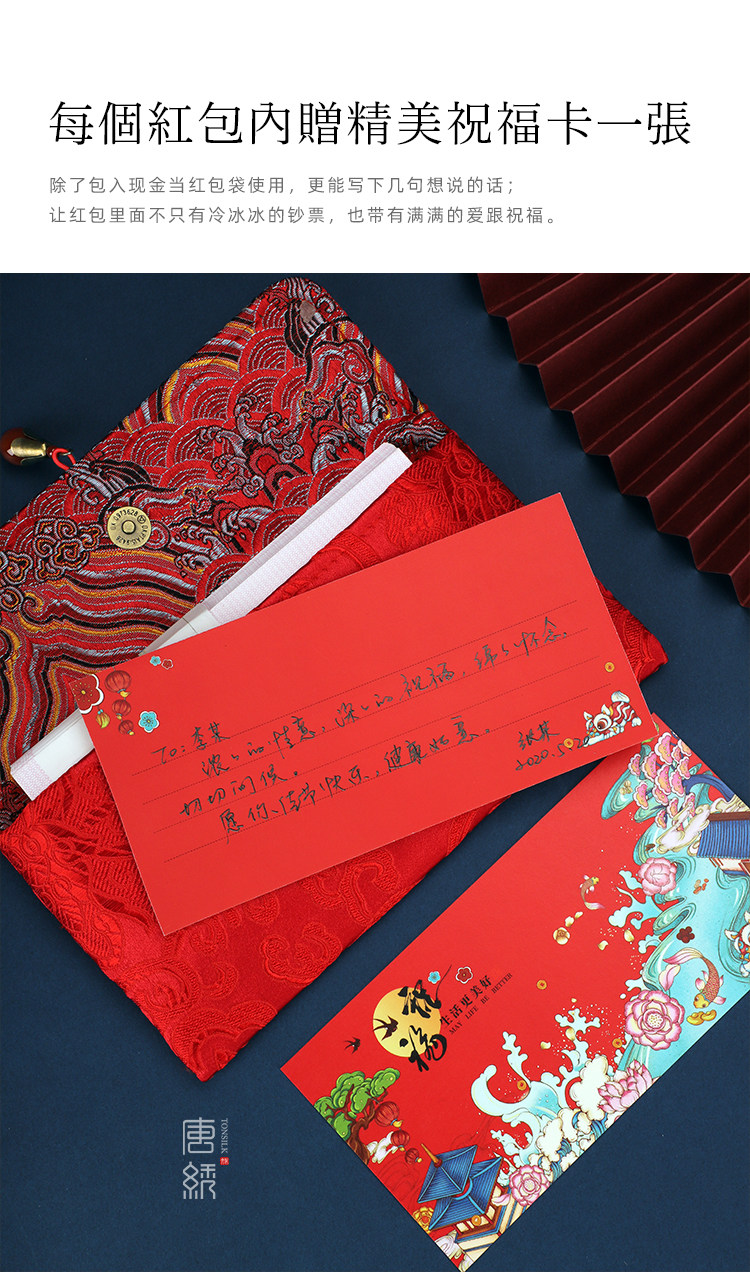 每個紅包內贈精美祝福卡一張
除了包入现金当红包袋使用，更能写下几句想说的话；
让红包里面不只有冷冰冰的钞票，也带有满满的爱跟祝福。
TO：李某
浓々的情意、深々的祝福、绵々怀念、
切切问候。
愿你、佳节快乐、健康如意。
张某
2020.5
祝福
生活更美好
MAY LIFE BE BETTER
唐綉
TONSILK